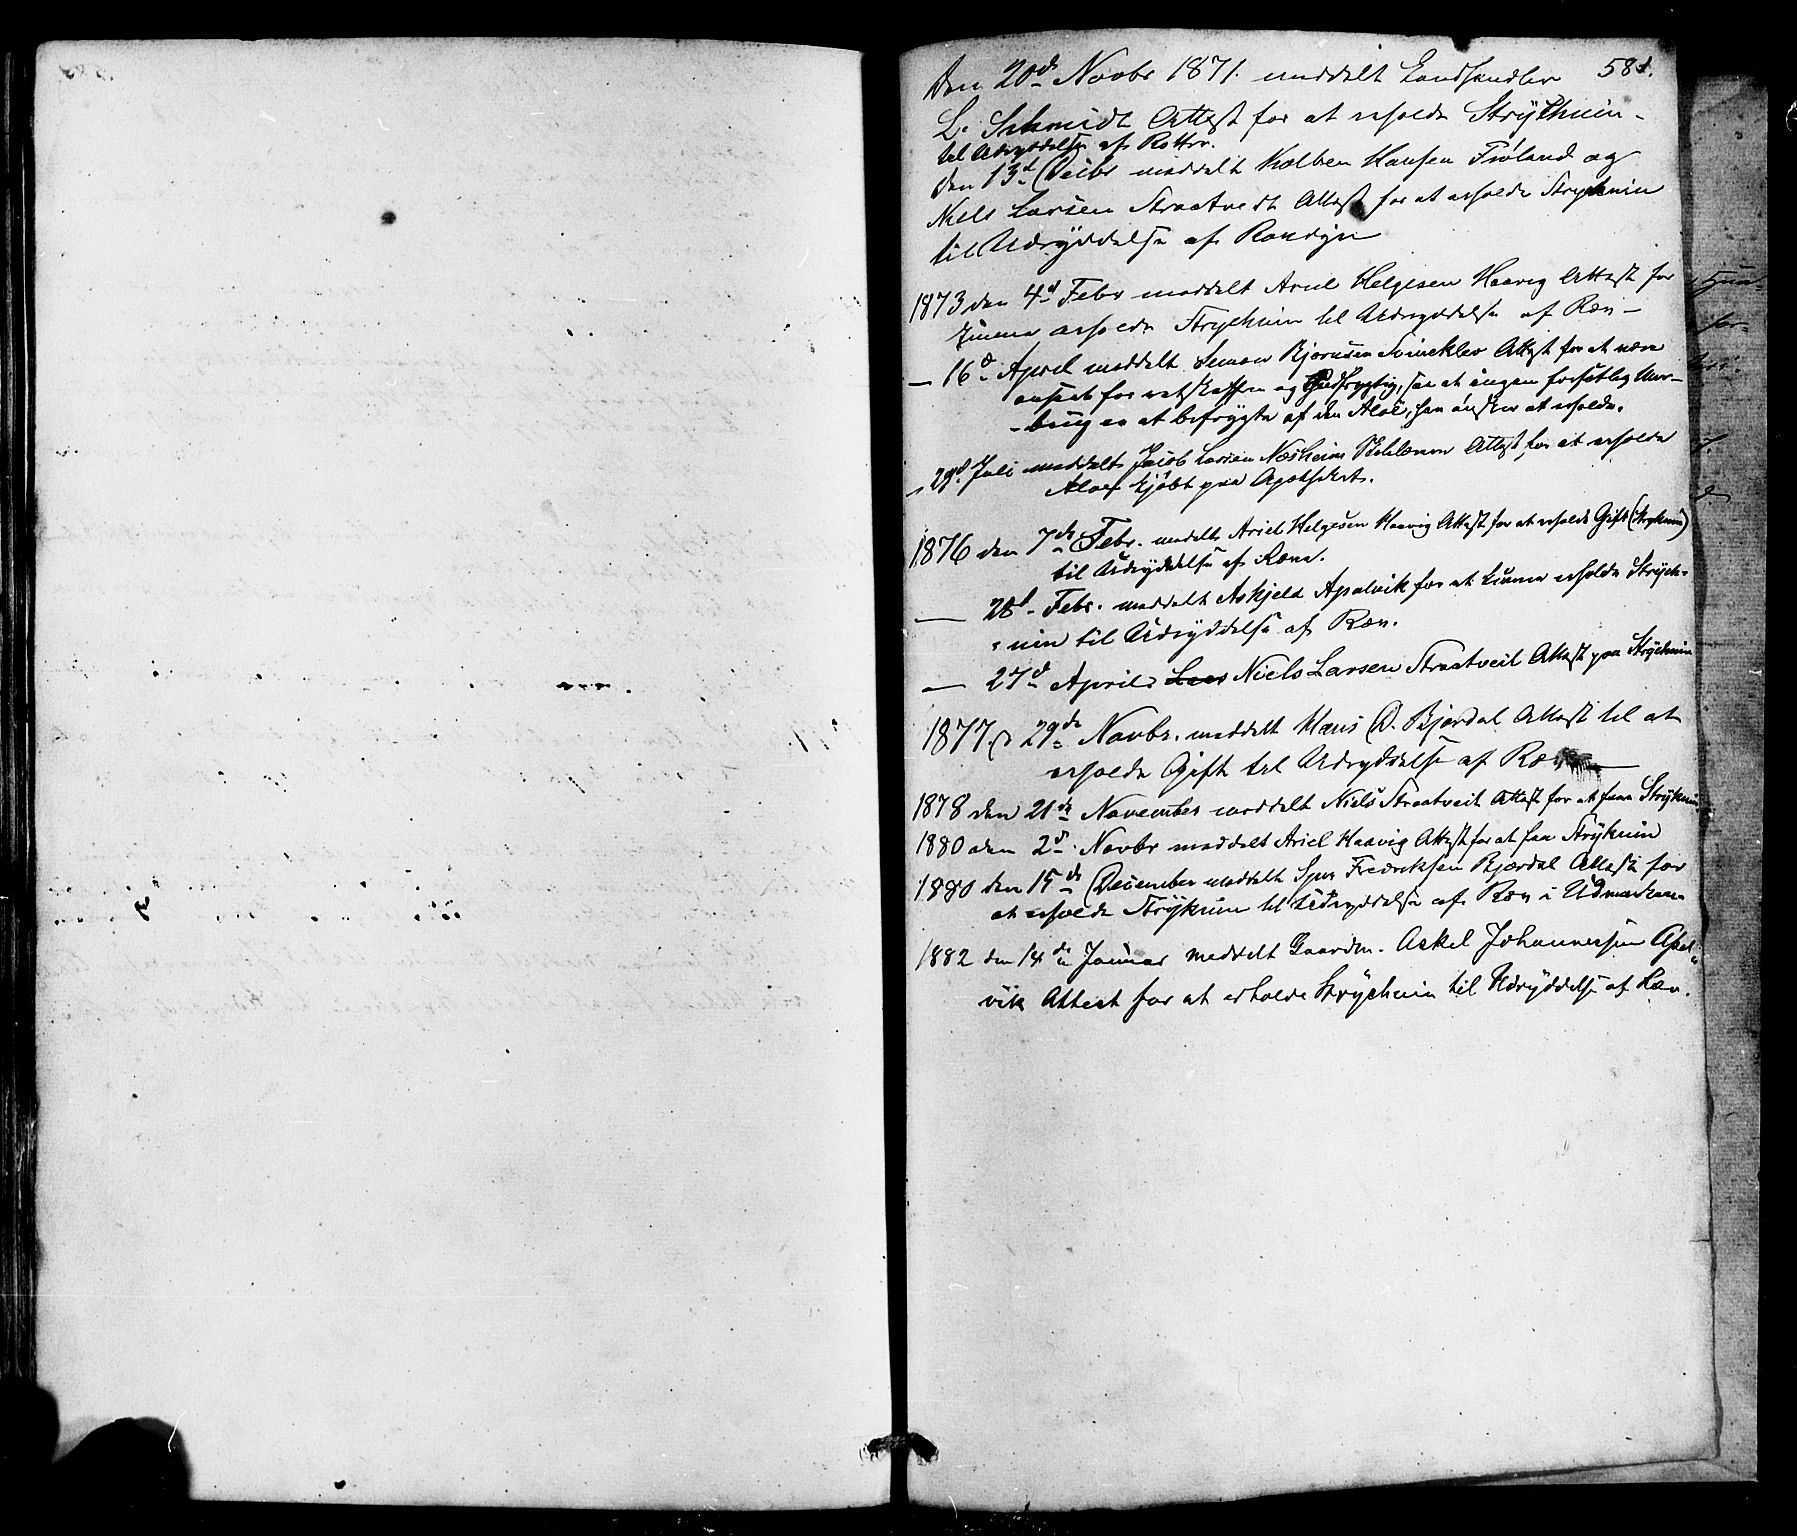 581.
Den 20de Novbr 1871. meddelt Landhandler
L. Schmidt Attest for at erholde Strÿchnin
til Udryddelse af Rotter.
den 13d Decbr meddelt Kolben Hansen Frøland og
Niels Larsen Straatvedt Attest for at erholde Strychnin
til Udrÿddelse af Rovdyr
1873 den 4d Febr meddelt Ariel Helgesen Haavig Attest for
kunne erholde Strychnin til Udryddelse af Ræv
— 16d April meddelt Simon Bjørnsen Attest for at være
anseet for retskaffen og Gudfrygtig, saa at ingen forsætlig Mis-
-brug er at befrygte af den Aloë, han ønsker at erholde.
— 29d Juli meddelt Jacob Larsen Næsheim Attest for at erholde
Aloe kjøbt paa Apotheket.
1876 den 7de Febr. meddelt Ariel Helgesen Haavig Attest for at erholde Gift (Stryknin)
til Udryddelse af Ræve.
— 28d Febr. meddelt Askjeld Apalvik for at kunne erholde Strÿch-
nin til Udrÿddelse af Ræv.
— 27d April Lars Niels Larsen Straatveit Attest paa Strÿchnin
1877 d 29de Novbr. meddelt Hans D. Bjordal Attest til at
erholde Gift til Udryddelse af Ræv
1878 den 21de November meddelt Niels Straatveit Attest for at faae Strÿknin
1880 den 2d Novbr meddelt Ariel Haavig Attest for at faa Strÿknin
1880 den 15de December meddelt Fredriksen Bjordal Attest for
at erholde Strÿknin til Udryddelse af Ræv i Udmarken
1882 den 14de Januar meddelt Gaardm. Askel Johannessen Apal-
vik Attest for at erholde Strÿchnin til Udrÿddelse af Ræv.